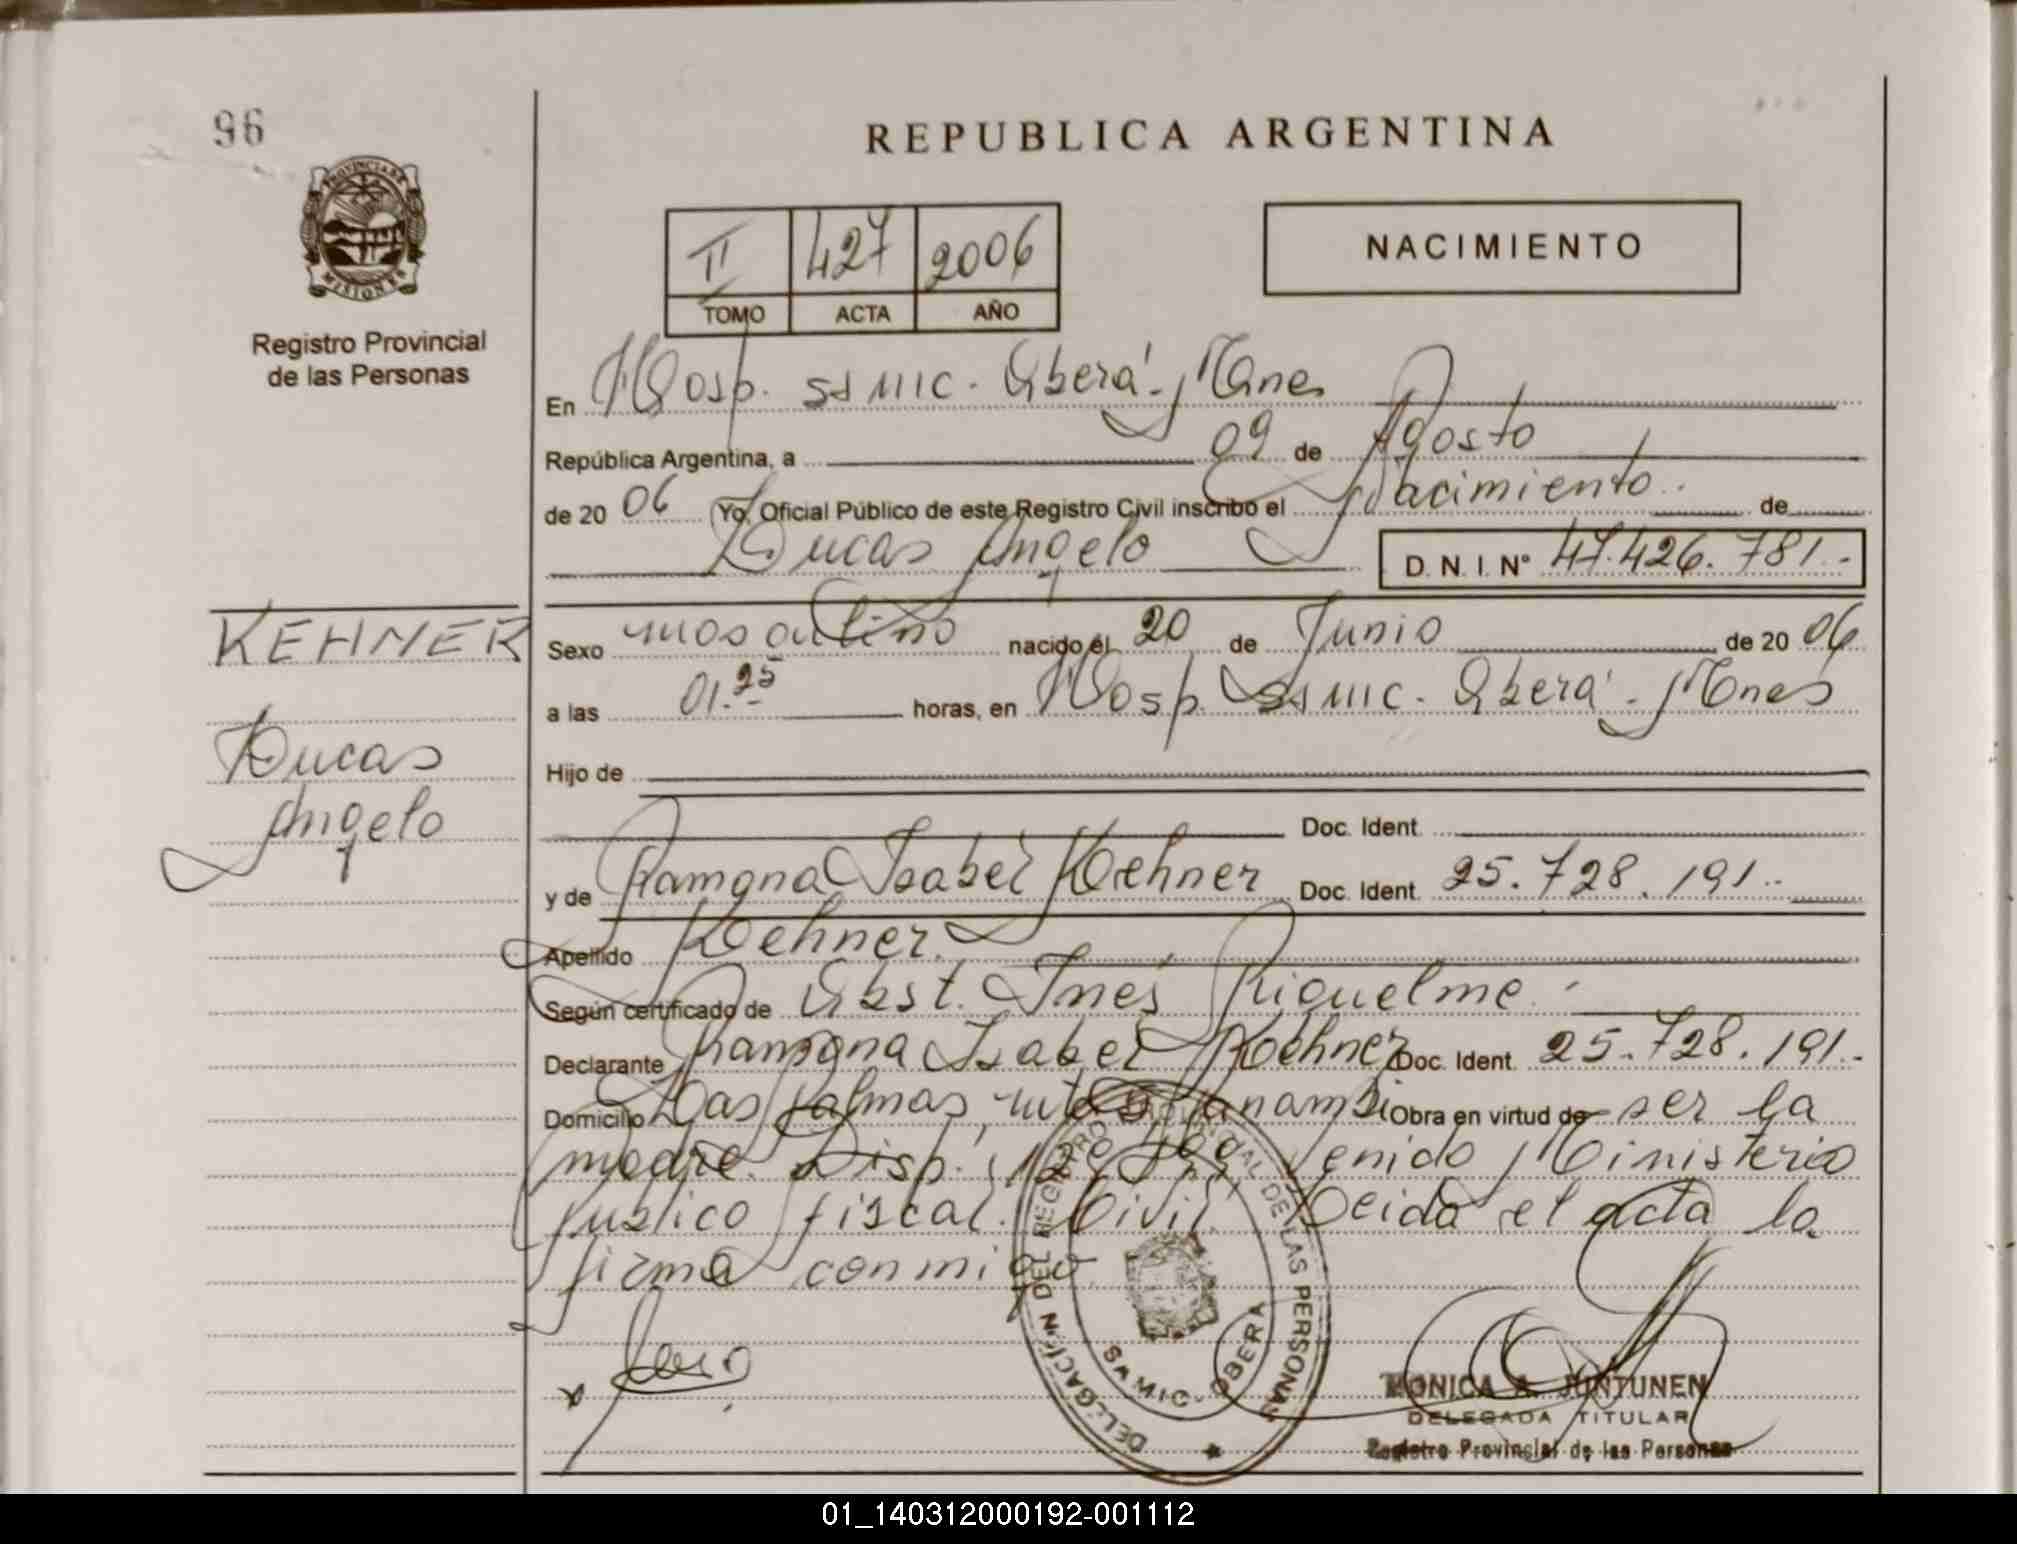 96
REPUBLICA ARGENTINA
PROVINCIA DE
MISIONES
Registro Provincial
de las Personas
II 427 2006
TOMO ACTA AÑO
NACIMIENTO
En Hosp. SAMIC. Oberá - Mnes
República Argentina, a 09 de Agosto
de 20 06 Yo, Oficial Público de este Registro Civil inscribo el Nacimiento de
Lucas Angelo D. N. I. Nº 47.426.781.-
KEHNER
Lucas
Angelo
Sexo masculino nacido el 20 de Junio de 20 06
a las 01.25 horas, en Hosp. SAMIC. Oberá - Mnes
Hijo de
Doc. Ident.
y de Ramona Isabel Kehner Doc. Ident. 25.728.191.-
Apellido Kehner.
Según certificado de Obst. Inés Riquelme.
Declarante Ramona Isabel Kehner Doc. Ident. 25.728.191.-
Domicilio Las Palmas, ruta Panambi Obra en virtud de ser la
madre. Disp. Venido Ministerio
Publico fiscal. Civil. Leida el acta la
firma conmigo
DELEGACIÓN DEL REGISTRO PROVINCIAL DE LAS PERSONAS
SAMIC - OBERA
MONICA A. JUNTUNEN
DELEGADA TITULAR
Registro Provincial de las Personas
01_140312000192-001112